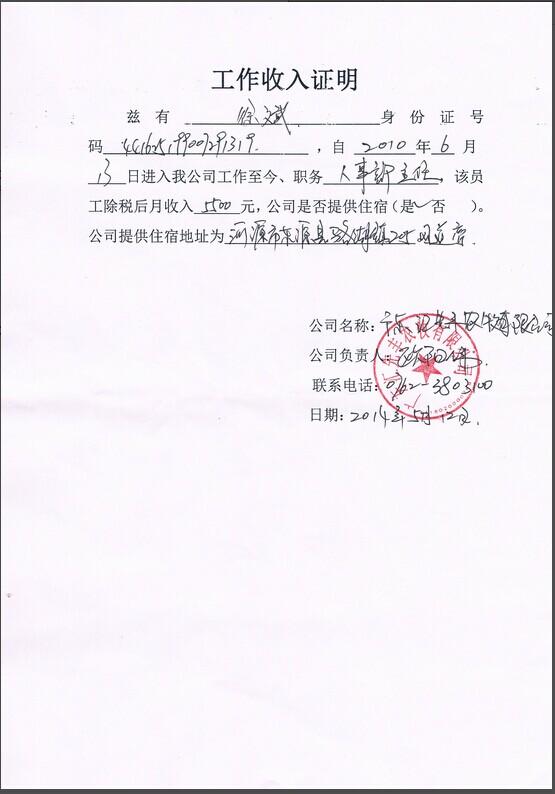 工作收入证明
兹有 徐斌 身份证号
码 441625199007291319 ，自 2010 年 6 月
13 日进入我公司工作至今、职务 人事部主任，该员
工除税后月收入 5500 元，公司是否提供住宿（是✓ 否 ）。
公司提供住宿地址为 河源市东源县
公司名称：
公司负责人：
联系电话：0762-3803100
日期：2014年5月12日